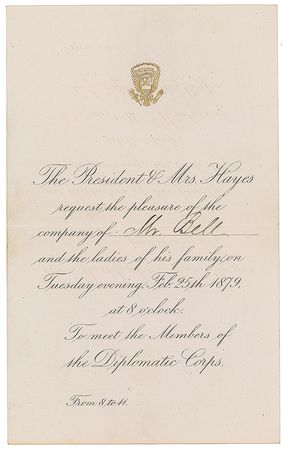 The President & Mrs. Hayes
request the pleasure of the
company of Mr. Bell
and the ladies of his family, on
Tuesday evening, Feb. 25th 1879,
at 8 o'clock.
To meet the Members of
the Diplomatic Corps.
From 8, to 11.